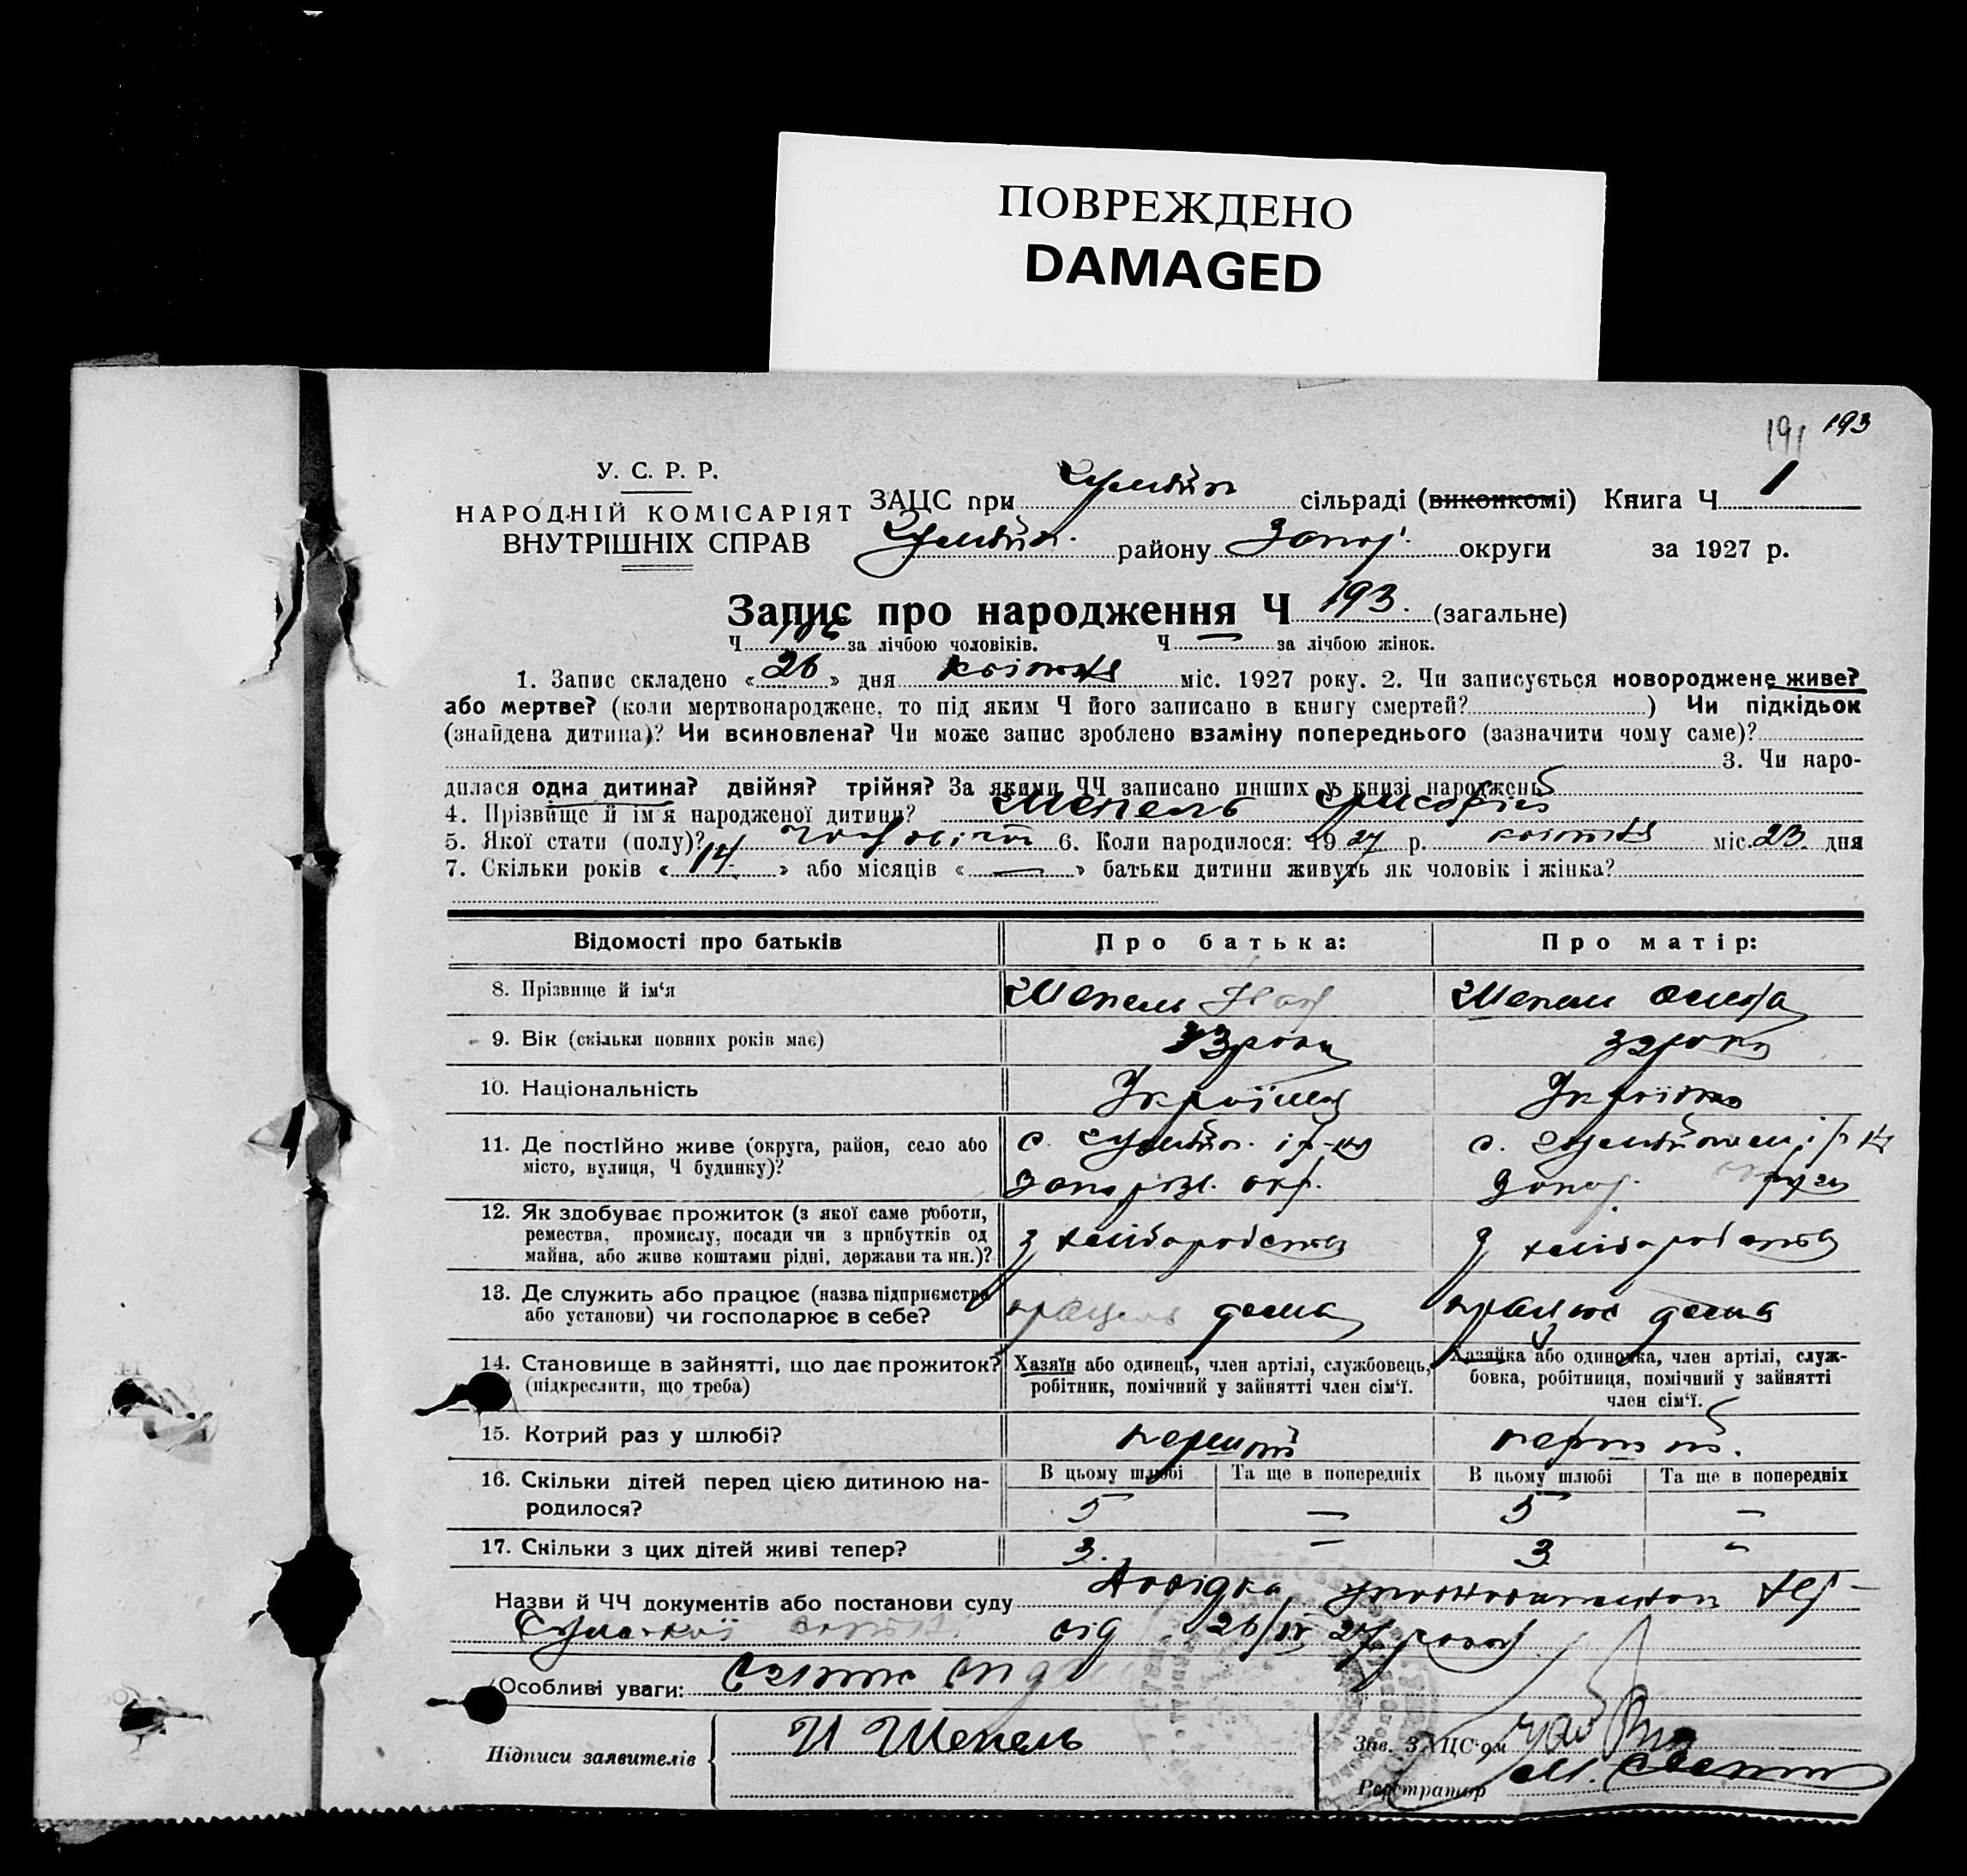 ПОВРЕЖДЕНО
DAMAGED
191 193
У. С. Р. Р.
НАРОДНІЙ КОМІСАРІЯТ
ВНУТРІШНІХ СПРАВ
ЗАЦС при сільраді (виконкомі) Книга Ч 1
району Запор. округи за 1927 р.
Запис про народження Ч 193. (загальне)
Ч 106 за лічбою чоловіків. Ч — за лічбою жінок.
1. Запис складено « 26 » дня квітня міс. 1927 року. 2. Чи записується новороджене живе?
або мертве? (коли мертвонароджене, то під яким Ч його записано в книгу смертей? ) Чи підкідьок
(знайдена дитина)? Чи всиновлена? Чи може запис зроблено взаміну попереднього (зазначити чому саме)?
3. Чи наро-
дилася одна дитина? двійня? трійня? За якими ЧЧ записано инших у книзі народжень
4. Прізвище й ім'я народженої дитини? Шепель Григорій
5. Якої стати (полу)? чоловічої 6. Коли народилося: 1927 р. квітня міс. 23. дня
7. Скільки років « 14 » або місяців « — » батьки дитини живуть як чоловік і жінка?
Відомості про батьків Про батька: Про матір:
8. Прізвище й ім'я Шепель Іван Шепель
9. Вік (скільки повних років має) 33 роки 32 роки
10. Національність Українець Українка
11. Де постійно живе (округа, район, село або
місто, вулиця, Ч будинку)? с. і р-ну с. і р-ну
Запоріз. окр. Запор. округи
12. Як здобуває прожиток (з якої саме роботи,
ремества, промислу, посади чи з прибутків од
майна, або живе коштами рідні, держави та ин.)? з хліборобства з хліборобства
13. Де служить або працює (назва підприємства
або установи) чи господарює в себе? працює дома працює дома
14. Становище в зайнятті, що дає прожиток?
(підкреслити, що треба)
Хазяїн або одинець, член артілі, службовець,
робітник, помічний у зайнятті член сім'ї.
Хазяйка або одиночка, член артілі, служ-
бовка, робітниця, помічний у зайнятті
член сім'ї.
15. Котрий раз у шлюбі? перший перший.
16. Скільки дітей перед цією дитиною на-
родилося?
В цьому шлюбі Та ще в попередніх В цьому шлюбі Та ще в попередніх
5 — 5 —
17. Скільки з цих дітей живі тепер? 3. — 3 —
Назви й ЧЧ документів або постанови суду Довідка
від 26/IV 27 року
Особливі уваги:
Підписи заявителів И Шепель
Зав. ЗАЦС'ом
Реєстратор М.